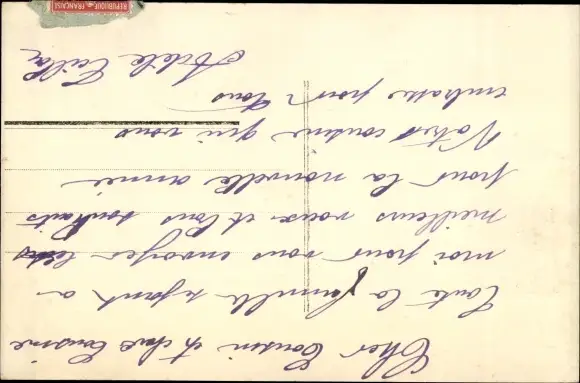 Cher Cousin et chère Cousine
Toute la famille se joint a
moi pour vous envoyer les
meilleurs voeux et bons souhaits
pour la nouvelle année
Votre cousine qui vous
embrasse pour tous
Adèle
REPUBLIQUE FRANÇAISE